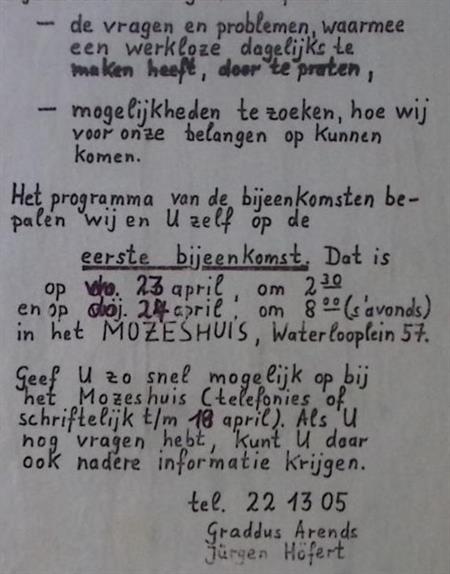 — de vragen en problemen, waarmee
een werkloze dagelijks te
maken heeft, door te praten,
— mogelijkheden te zoeken, hoe wij
voor onze belangen op kunnen
komen.
Het programma van de bijeenkomsten be-
palen wij en U zelf op de
eerste bijeenkomst. Dat is
op 23 april, om 2 30
en op 24 april, om 8 00 (s'avonds)
in het MOZESHUIS, Waterlooplein 57.
Geef U zo snel mogelijk op bij
het Mozeshuis (telefonies of
schriftelijk t/m 18 april). Als U
nog vragen hebt, kunt U daar
ook nadere informatie krijgen.
tel. 22 13 05
Graddus Arends
Jürgen Höfert